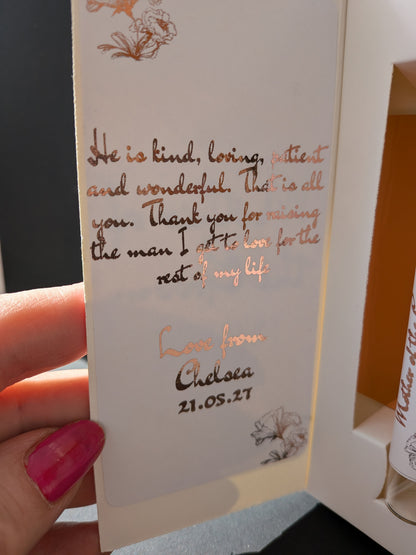 He is kind, loving, patient
and wonderful. That is all
you. Thank you for raising
the man I get to love for the
rest of my life
Love from
Chelsea
21.05.27
Mother of the